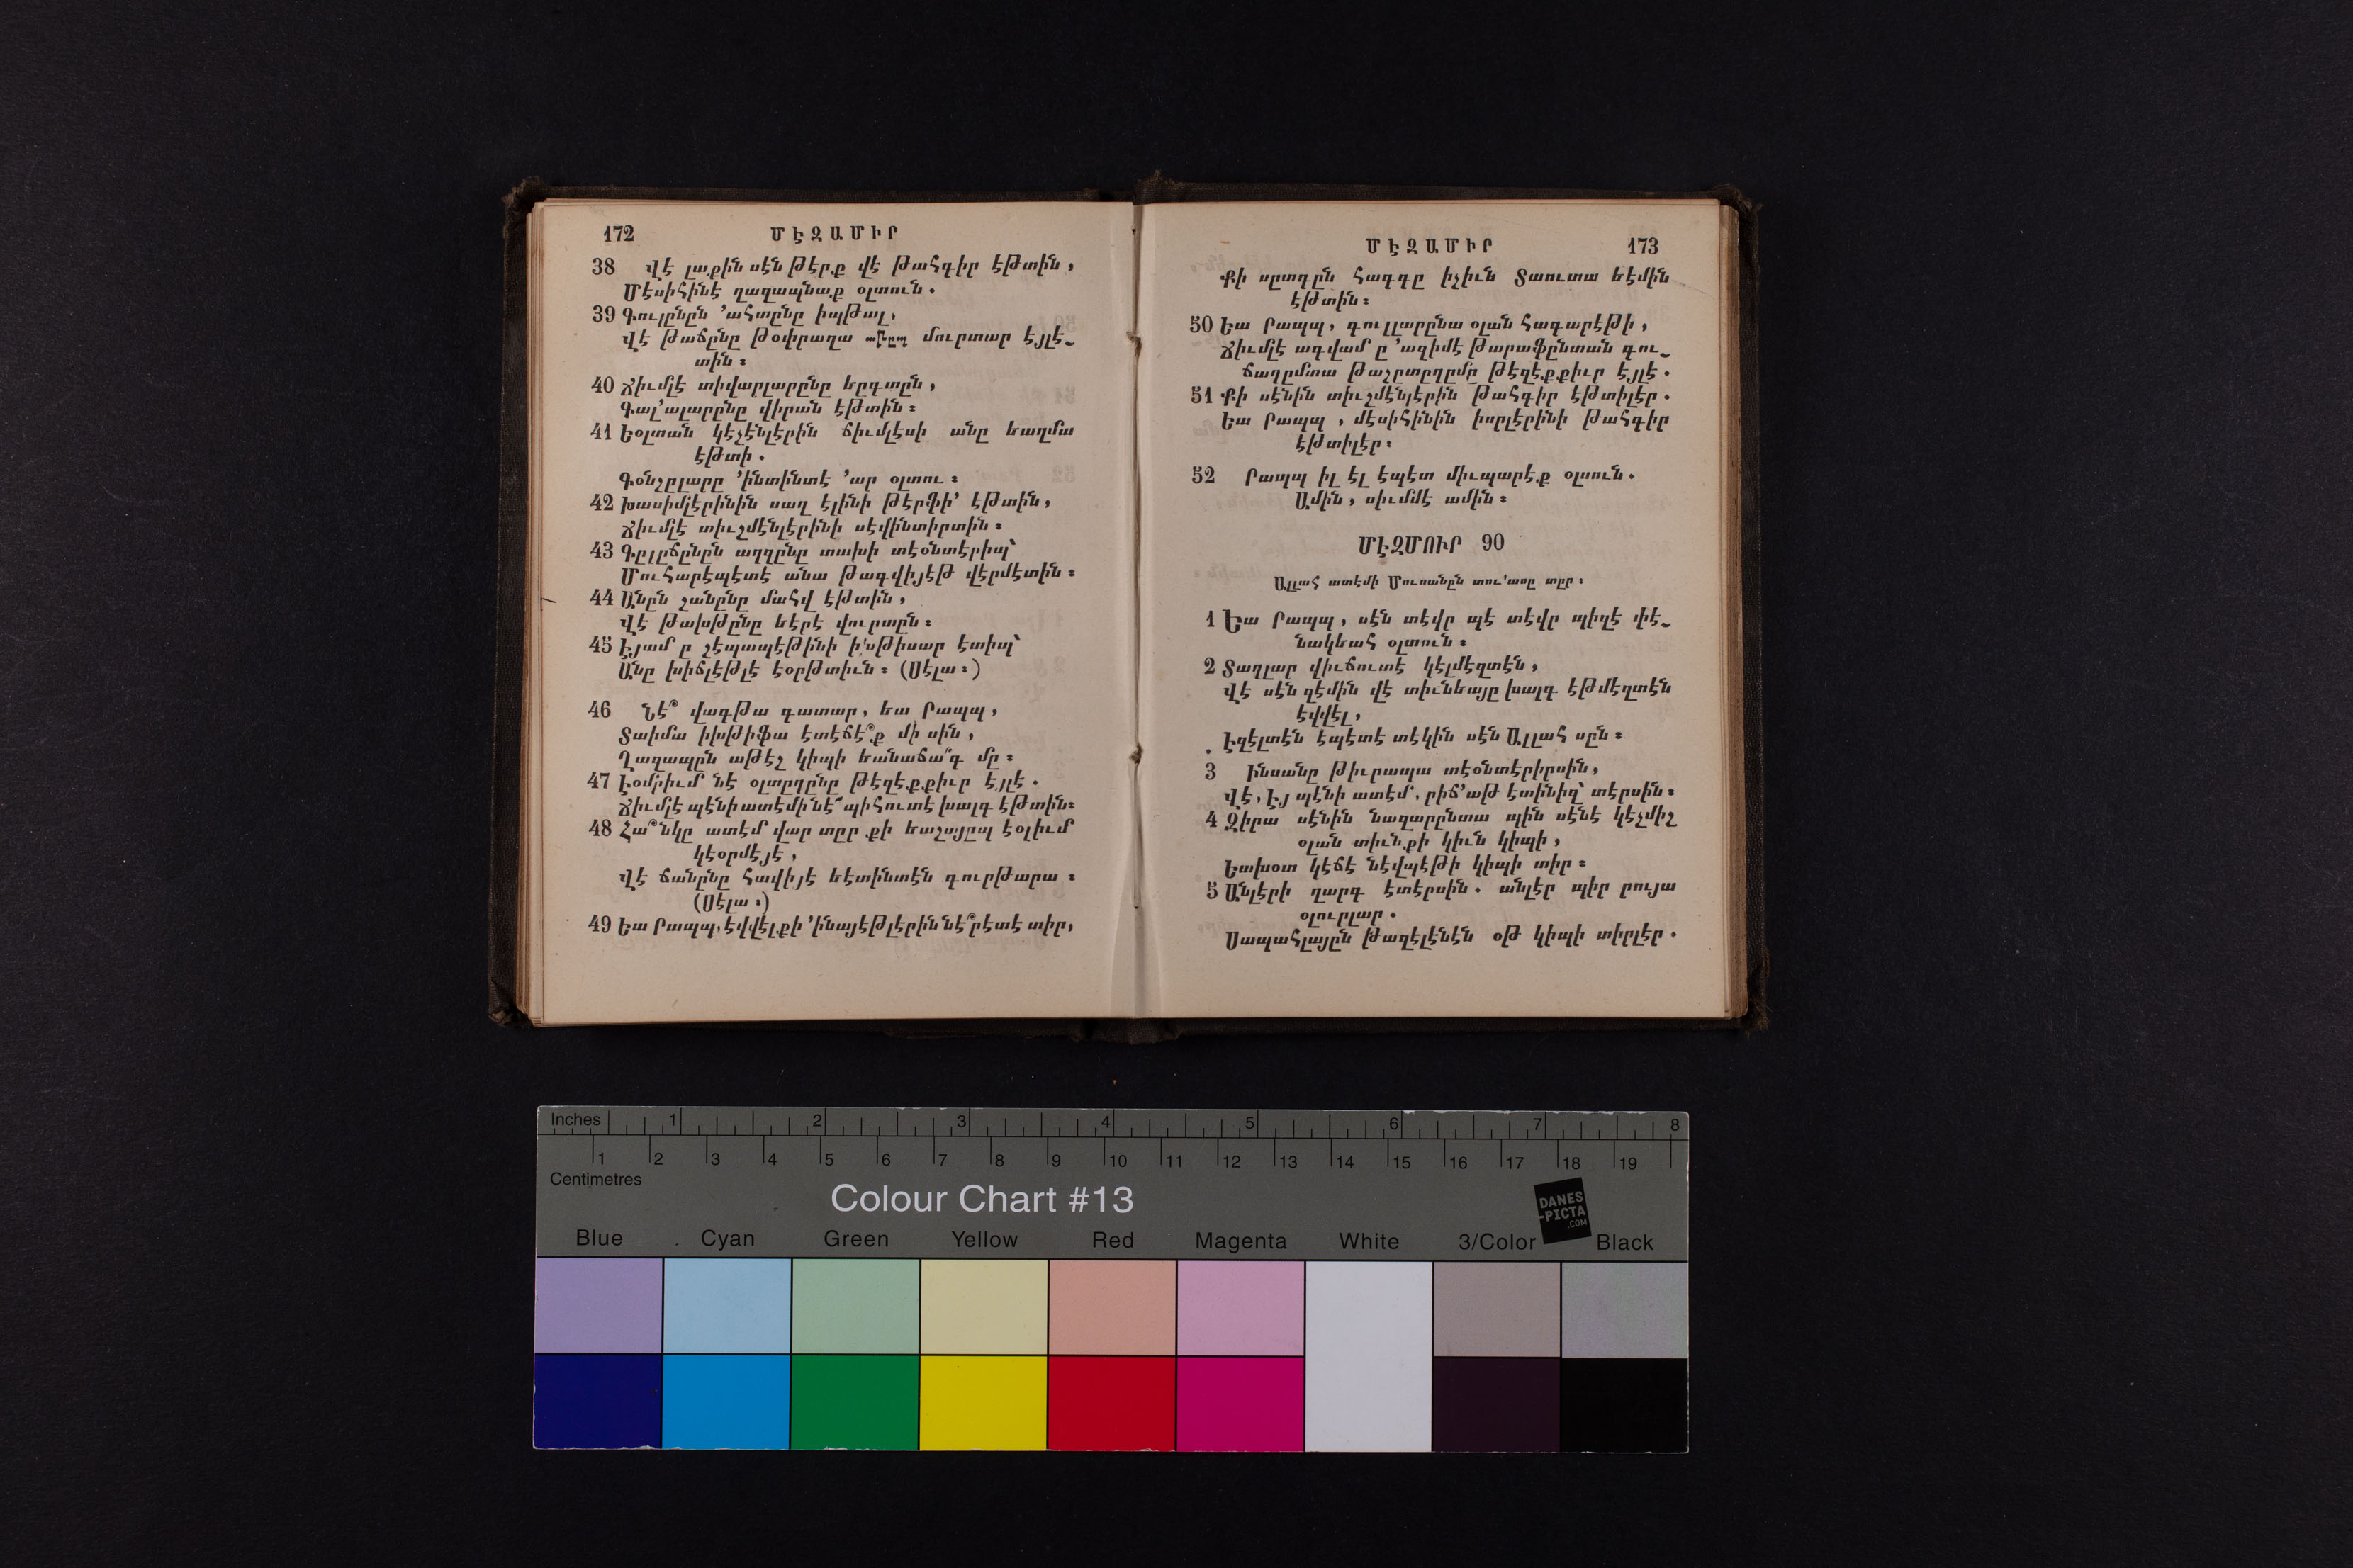 172 ՄԷԶԱՄԻՐ
38 Վէ լաքին սէն թէրք վէ թահգիր էթտին,
Մէսիհինէ ղազապնաք օլտուն.
39 Գուլընըն ՚ահտընը իպթալ,
Վէ թաճընը թօփրաղա մուրտար էյլէ-
տին։
40 Ճիւմլէ տիվարլարընը եըգտըն,
Գալ՚ալարընը վիրան էթտին։
41 Եօլտան կէչէնլէրին ճիւմլէսի անը եաղմա
էթտի.
Գօնշըլարը ՚ինտինտէ ՚ար օլտու։
42 Խասիմլէրինին սաղ էլինի թէրֆի՚ էթտին,
Ճիւմլէ տիւշմէնլէրինի սէվինտիրտին։
43 Գըլըճընըն աղզընը տախի տէօնտէրիպ՝
Մուհարէպէտէ անա թագվիյէթ վէրմէտին։
44 Անըն շանընը մահվ էթտին,
Վէ թախթընը եէրէ վուրտըն։
45 Էյամ ը շէպապէթինի ի՚սթիսար էտիպ՝
Անը խիճլէթլէ էօրթտիւն։ (Սէլա։)
46 Նէ՞ վագթա գատար, եա Րապպ,
Տաիմա իխթիֆա էտէճէ՞ք մի սին,
Ղազապըն աթէշ կիպի եանաճա՞գ մը։
47 Էօմրիւմ նէ օլտըղընը թէզէքքիւր էյլէ.
Ճիւմլէ պէնիատէմի նէ՞ պիհուտէ խալգ էթտին։
48 Հա՞նկը ատէմ վար տըր քի եաշայըպ էօլիւմ
կէօրմէյէ,
Վէ ճանընը հավիյէ եէտինտէն գուրթարա։
(Սէլա։)
49 Եա Րապպ, էվվէլքի ՚ինայէթլէրին նէ՞րէտէ տիր,
ՄԷԶԱՄԻՐ 173
Քի սըտգըն հագգը իչիւն Տաուտա եէմին
էթտին։
50 Եա Րապպ, գուլլարընա օլան հագարէթի,
Ճիւմլէ ագվամ ը ՚ազիմէ թարաֆընտան գու-
ճաղըմտա թաշըտըղըմը թէզէքքիւր էյլէ.
51 Քի սէնին տիւշմէնլէրին թահգիր էթտիլէր.
Եա Րապպ, մէսիհինին իսրլէրինի թահգիր
էթտիլէր։
52 Րապպ իլ էլ էպէտ միւպարէք օլսուն.
Ամին, սիւմմէ ամին։
ՄԷԶՄՈՒՐ 90
Ալլահ ատէմի Մուսանըն տու՚ասը տըր։
1 Եա Րապպ, սէն տէվր պէ տէվր պիզէ փէ-
նակեահ օլտուն։
2 Տաղլար վիւճուտէ կէլմէզտէն,
Վէ սէն զէմին վէ տիւնեայը խալգ էթմէզտէն
էվվէլ,
Էզէլտէն էպէտէ տէկին սէն Ալլահ սըն։
3 Ինսանը թիւրապա տէօնտէրիրսին,
Վէ, Էյ պէնի ատէմ, րիճ՚աթ էտինիզ՝ տէրսին։
4 Զիրա սէնին նազարընտա պին սէնէ կէչմիշ
օլան տիւնքի կիւն կիպի,
Եախօտ կէճէ նէվպէթի կիպի տիր։
5 Անլէրի ղարգ էտէրսին. անլէր պիր րույա
օլուրլար.
Սապահլայըն թազէլէնէն օթ կիպի տիրլէր.
Inches 1 2 3 4 5 6 7 8
1 2 3 4 5 6 7 8 9 10 11 12 13 14 15 16 17 18 19
Centimetres
Colour Chart #13
DANES
-PICTA
.COM
Blue Cyan Green Yellow Red Magenta White 3/Color Black